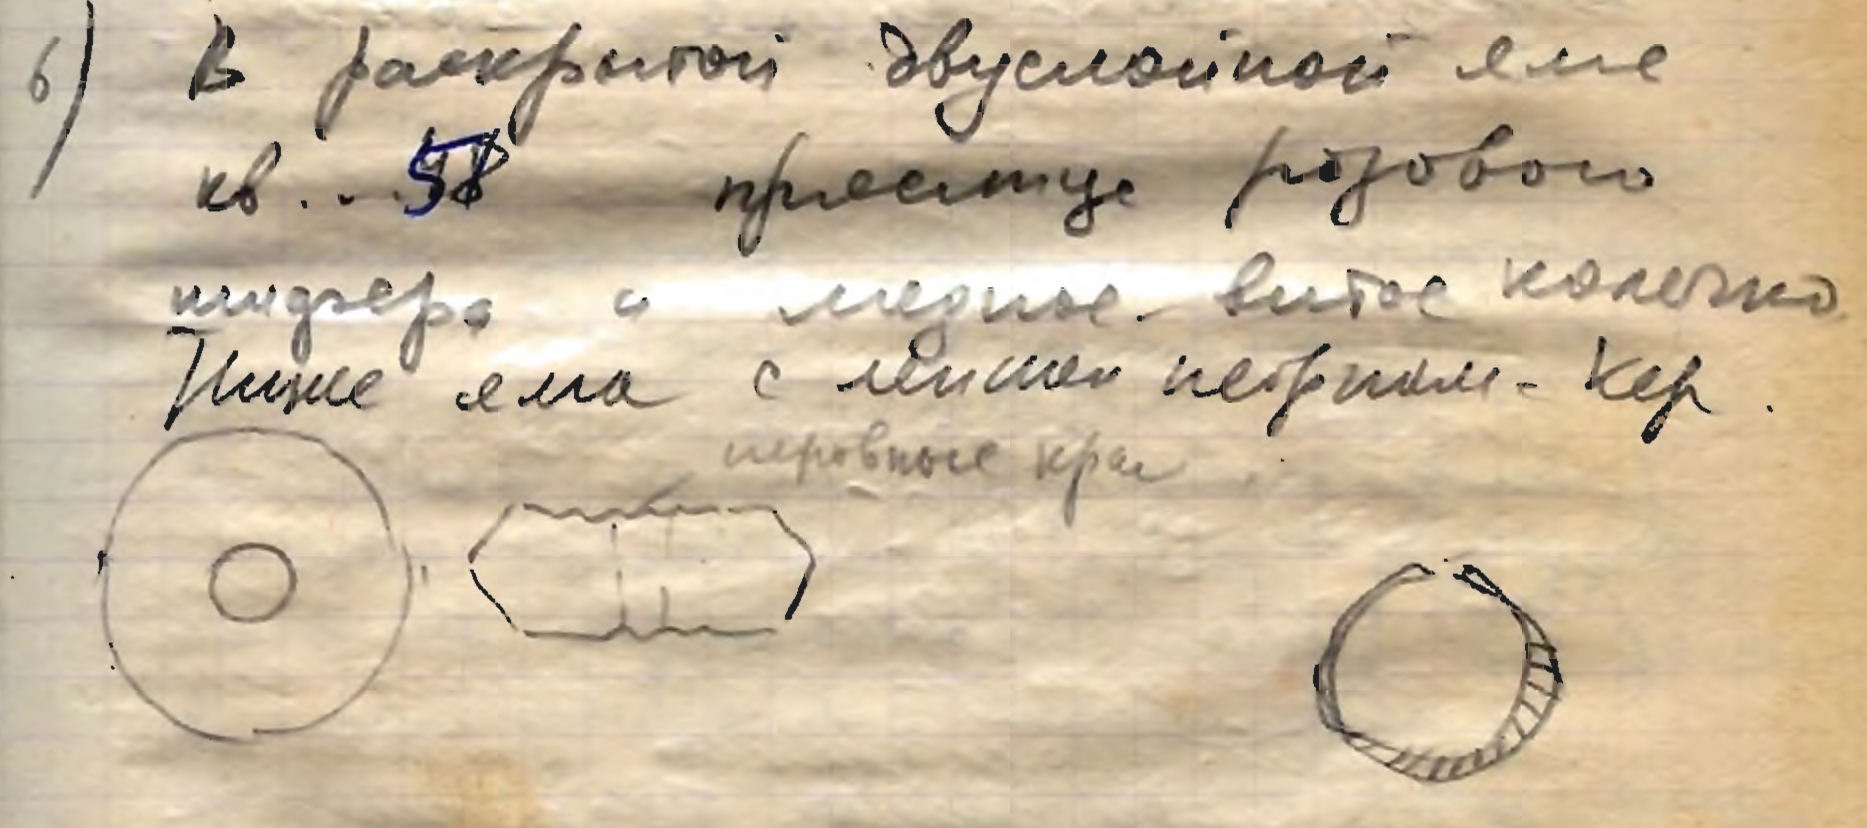 6) В раскрытой двуслойной яме
кв. .. 58 пряслице розового
шифера и медное витое колечко
Ниже яма с лепной неорнам. кер.
неровные края